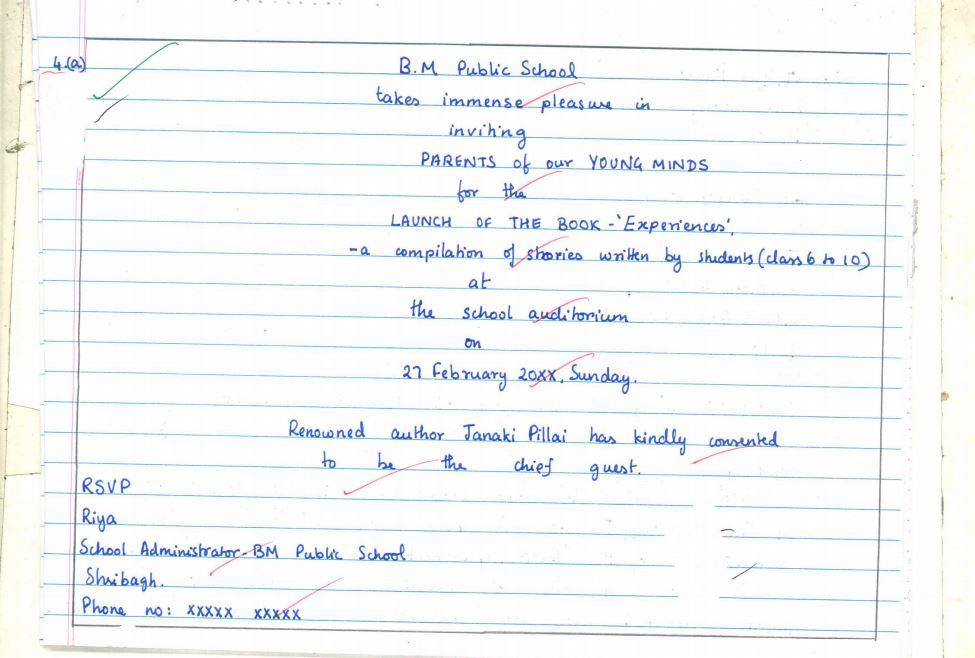 4.(a)
B.M Public School
takes immense pleasure in
inviting
PARENTS of our YOUNG MINDS
for the
LAUNCH OF THE BOOK - 'Experiences',
-a compilation of stories written by students (class 6 to 10)
at
the school auditorium
on
27 February 20XX, Sunday.
Renowned author Janaki Pillai has kindly consented
to be the chief guest.
RSVP
Riya
School Administrator- BM Public School
Shribagh.
Phone no: XXXXX XXXXX